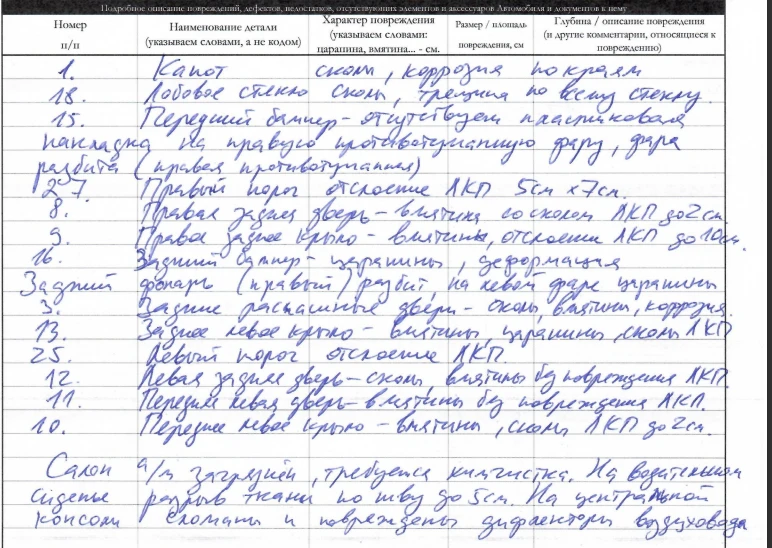 Подробное описание повреждений, дефектов, недостатков, отсутствующих элементов и аксессуаров Автомобиля и документов к нему
Номер п/п Наименование детали (указываем словами, а не кодом) Характер повреждения (указываем словами: царапина, вмятина... - см. Размер / площадь повреждения, см Глубина / описание повреждения (и другие комментарии, относящиеся к повреждению)
1. Капот сколы, коррозия по краям
18. Лобовое стекло сколы, трещина по всему стеклу.
15. Передний бампер - отсутствует пластиковая
накладка на правую противотуманную фару, фара
разбита (правая противотуманная)
27. Правый порог отслоение ЛКП 5см х 7см.
8. Правая задняя дверь - вмятина со сколом ЛКП до 2см.
9. Правое заднее крыло - вмятины, отслоение ЛКП до 10см.
16. Задний бампер - царапины, деформация
Задний фонарь (правый) разбит, на левой фаре царапины
3. Задние распашные двери - сколы, вмятины, коррозия.
13. Заднее левое крыло - вмятины, царапины, сколы ЛКП
25. Левый порог отслоение ЛКП.
12. Левая задняя дверь - сколы, вмятины без повреждения ЛКП.
11. Передняя левая дверь - вмятины без повреждения ЛКП.
10. Переднее левое крыло - вмятины, сколы ЛКП до 2см.
Салон а/м загрязнён, требуется химчистка. На водительском
сиденье разрыв ткани по шву до 5см. На центральной
консоли сломаны и повреждены дифлекторы воздуховода